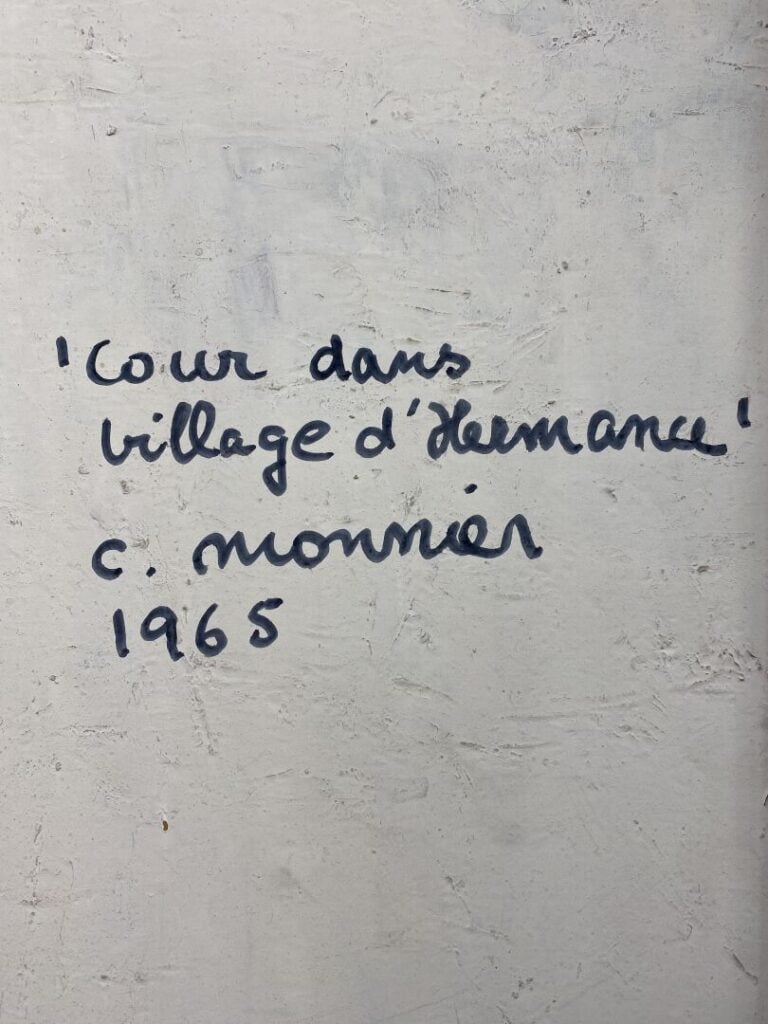 'Cour dans
village d'Hermance'
C. Monnier
1965